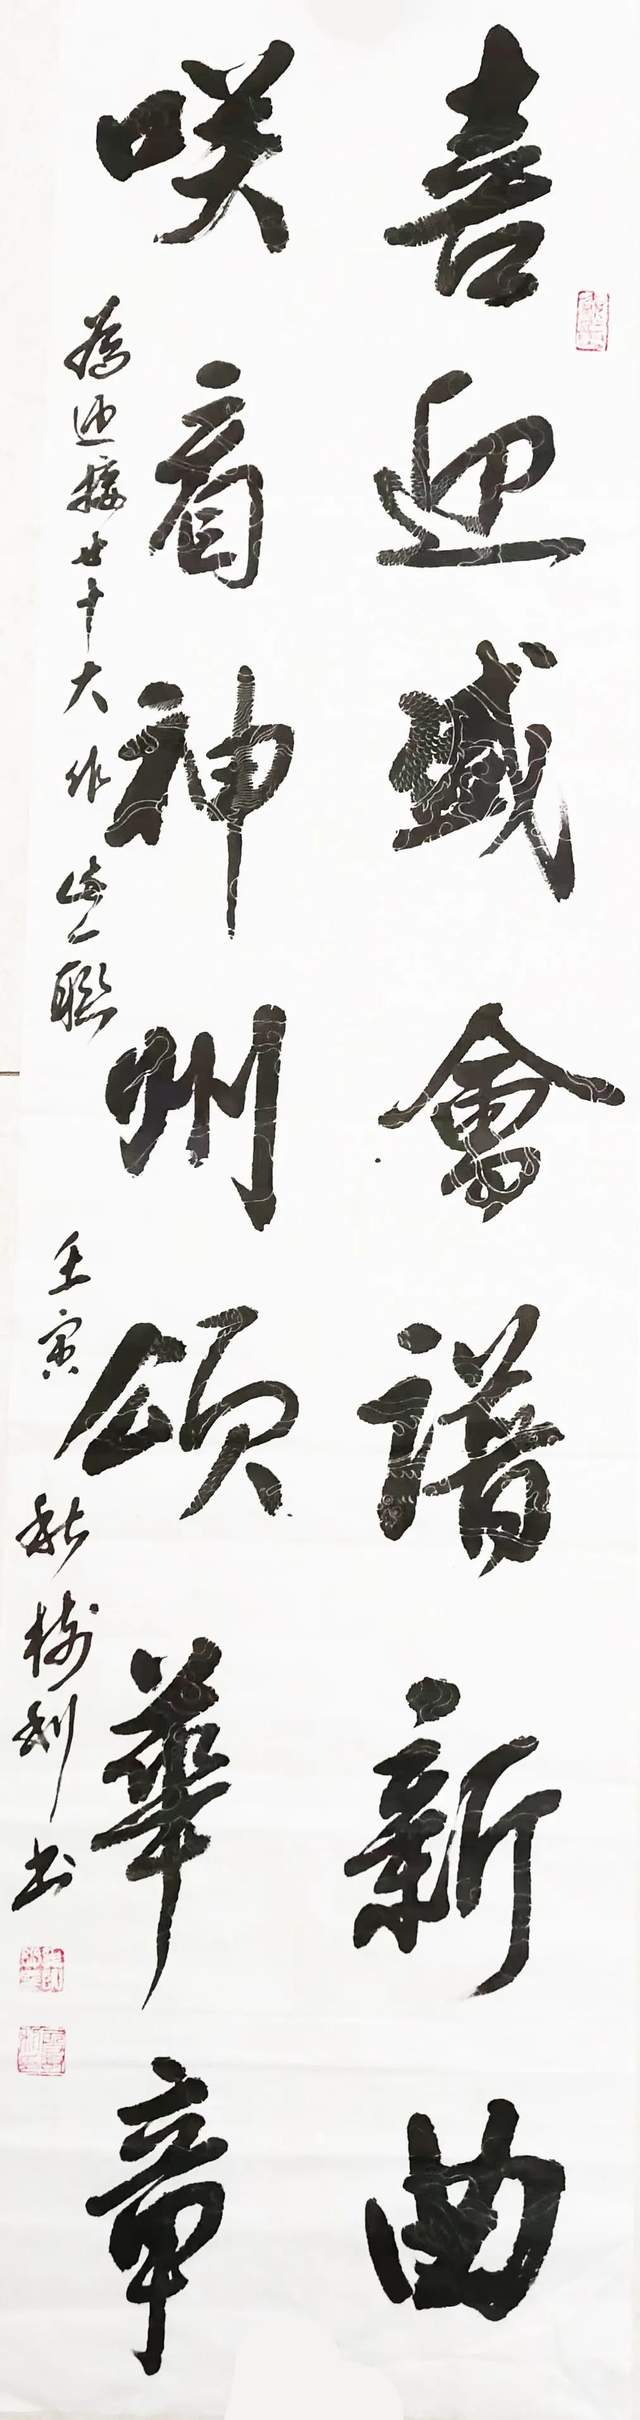 喜迎盛會譜新曲
咲看神州頌華章
為迎接廿十大作此聯 壬寅秋樹利書